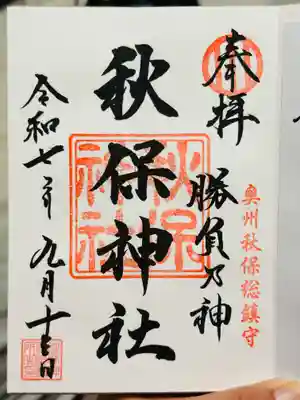 奉拝
奥州秋保総鎮守
勝負乃神
秋保神社
令和七年九月十三日